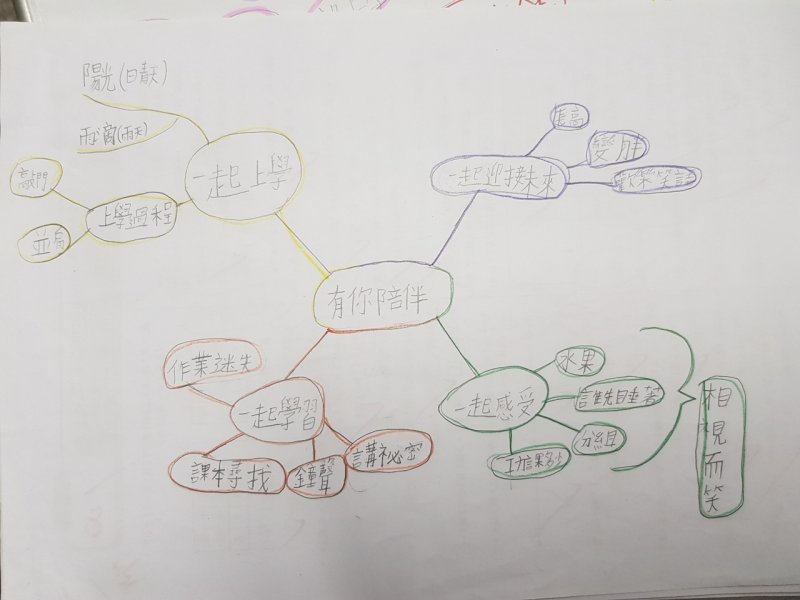 陽光(日晴天)
雨(雨天)
一起上學
敲門
上學過程
並肩
長高
變胖
一起迎接未來
歡樂笑話
有你陪伴
作業迷失
一起學習
課本尋找
鐘聲
講祕密
水果
一起感受
誰先睡著
分組
功課多少
相視而笑